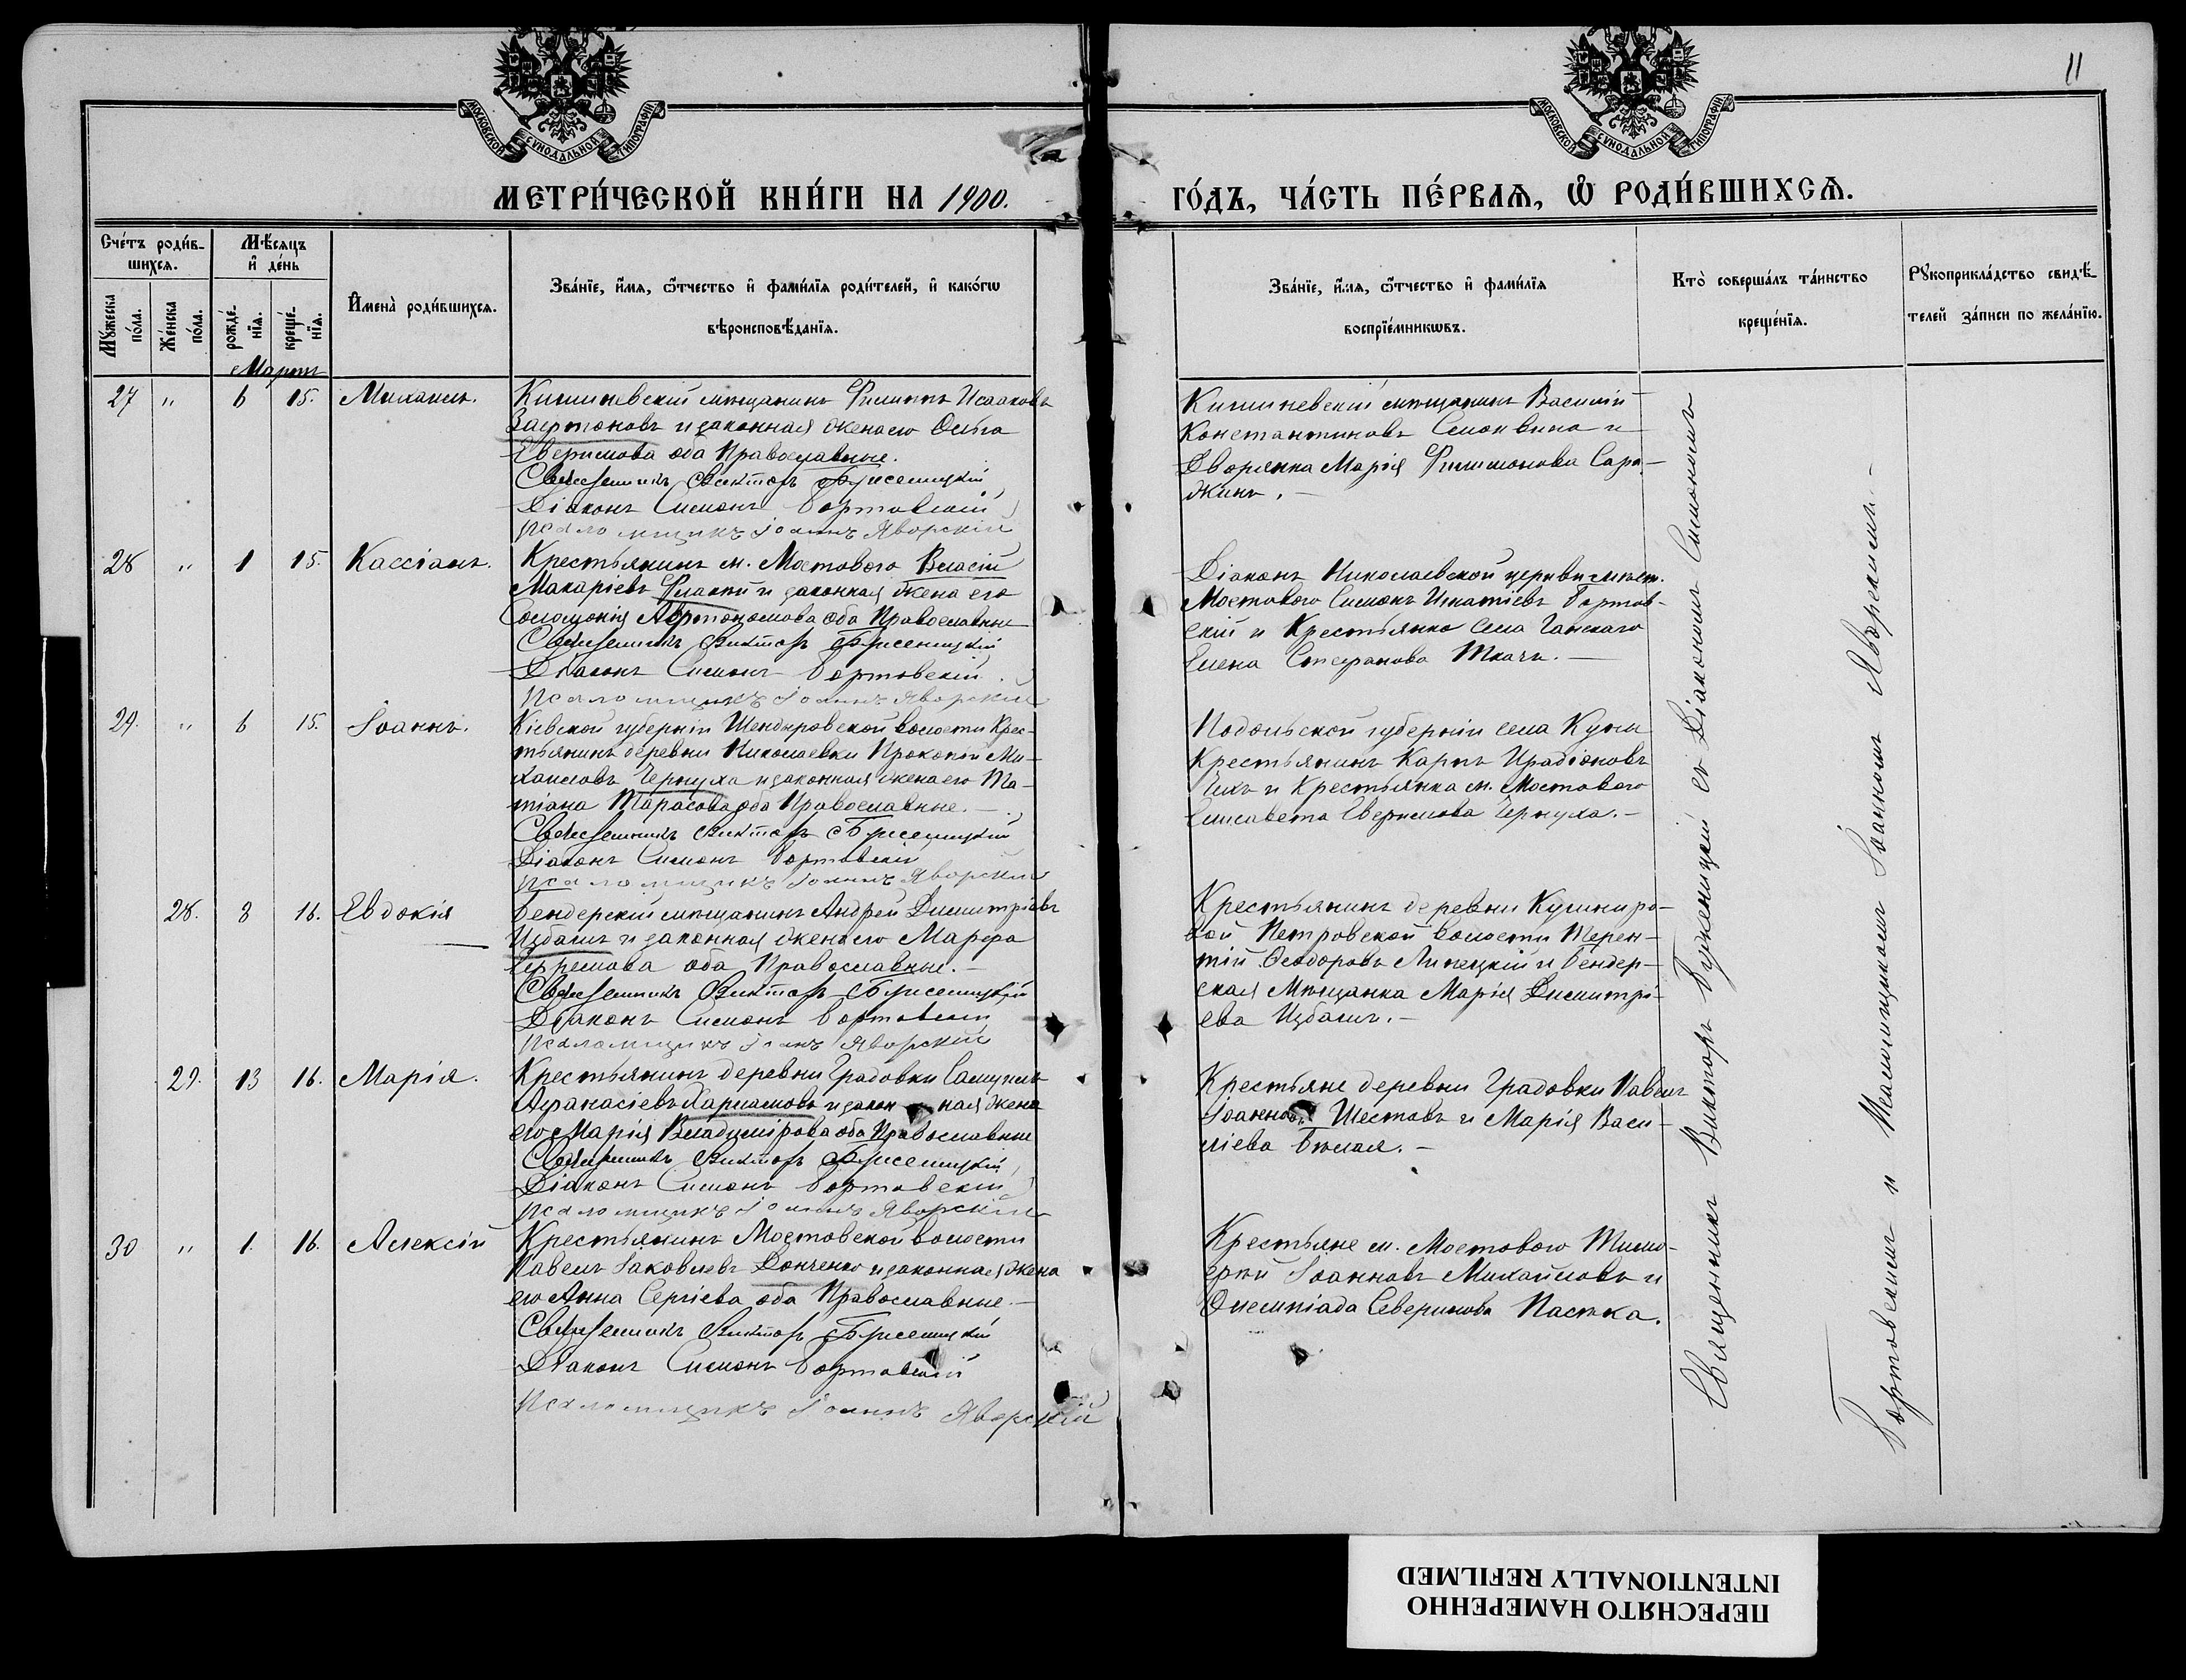 11
МОСКОВСКОЙ СУНОДАЛЬНОЙ ТИПОГРАФІИ
МОСКОВСКОЙ СУНОДАЛЬНОЙ ТИПОГРАФІИ
МЕТРИ́ЧЕСКОЙ КНИ́ГИ НА 1900.
ГО́ДЪ, ЧА́СТЬ ПЕ́РВАѦ, Ѿ РОДИ́ВШИХСѦ.
Сче́тъ роди́в-
шихсѧ.
Мꙋжеска
по́ла.
Же́нска
по́ла.
Мѣ́сѧцъ
и҆ де́нь
рожде́-
нїѧ.
креще́-
нїѧ.
И҆мена̀ роди́вшихсѧ.
Зва́нїе, и҆́мѧ, ѻ҆́тчество и҆ фами́лїѧ роди́телей, и҆ како́гѡ
вѣроисповѣ́данїѧ.
Зва́нїе, и҆́мѧ, ѻ҆́тчество и҆ фами́лїѧ
воспрїе́мникѡвъ.
Кто̀ соверша́лъ та́инство
креще́нїѧ.
Рꙋкоприкла́дство свидѣ́-
телей за́писи по жела́нїю.
Мартъ
27 " 6 15. Михаилъ.
Кишиневскій мѣщанинъ Филиппъ Исааковъ
и законная жена его
оба Православные.
Священникъ Викторъ
Діаконъ Симонъ Бортовскій
Псаломщикъ Іоаннъ Яворскій
Кишиневскій мѣщанинъ Василій
Константиновъ и
Дворянка Марія Филимонова
28 " 1 15. Кассіанъ.
Крестьянинъ м. Мостового Власій
Макаріевъ и законная жена его
Соломонія Автономова оба Православные
Священникъ Викторъ
Діаконъ Симонъ Бортовскій
Псаломщикъ Іоаннъ Яворскій
Діаконъ Николаевской церкви мѣст.
Мостового Симонъ Игнатіевъ Бортов-
скій и Крестьянка села
Елена Стефанова Ткачъ. —
29. " 6 15. Іоаннъ.
Кіевской губерніи Шендыровской волости Крес-
тьянинъ деревни Николаевки Прокопій Ми-
хаиловъ Чернуха и законная жена его Та-
тіана Тарасова оба Православные. —
Священникъ Викторъ
Діаконъ Симонъ Бортовскій
Псаломщикъ Іоаннъ Яворскій
Подольской губерніи села
Крестьянинъ Карпъ Иродіоновъ
и Крестьянка м. Мостового
Елисавета Чернуха. —
28. 8 16. Евдокія
Бендерскій мѣщанинъ Андрей Димитріевъ
Избашъ и законная жена его Марфа
Ефремова оба Православные. —
Священникъ Викторъ
Діаконъ Симонъ Бортовскій
Псаломщикъ Іоаннъ Яворскій
Крестьянинъ деревни Кушниро-
вой Петровской волости Терен-
тій Ѳеодоровъ Липецкій и Бендер-
ская Мѣщанка Марія Димитрі-
ева Избашъ. —
29. 13 16. Марія.
Крестьянинъ деревни Градовки Самуилъ
Аѳанасіевъ и законная жена
его Марія Владимірова оба Православные
Священникъ Викторъ
Діаконъ Симонъ Бортовскій
Псаломщикъ Іоаннъ Яворскій
Крестьяне деревни Градовки Павелъ
Іоанновъ Шестовъ и Марія Васи-
ліева Бѣлая. —
30 " 1. 16. Алексій
Крестьянинъ Мостовской волости
Павелъ Іаковлевъ Донченко и законная жена
его Анна Сергіева оба Православные. —
Священникъ Викторъ
Діаконъ Симонъ Бортовскій
Псаломщикъ Іоаннъ Яворскій
Крестьяне м. Мостового Тимо-
ѳей Іоанновъ Михайловъ и
Олимпіада Северинова Пастка.
Священникъ Викторъ съ Діакономъ Симономъ
Бортовскимъ и Псаломщикомъ Іоанномъ Яворскимъ. —
ПЕРЕСНЯТО НАМЕРЕННО
INTENTIONALLY REFILMED